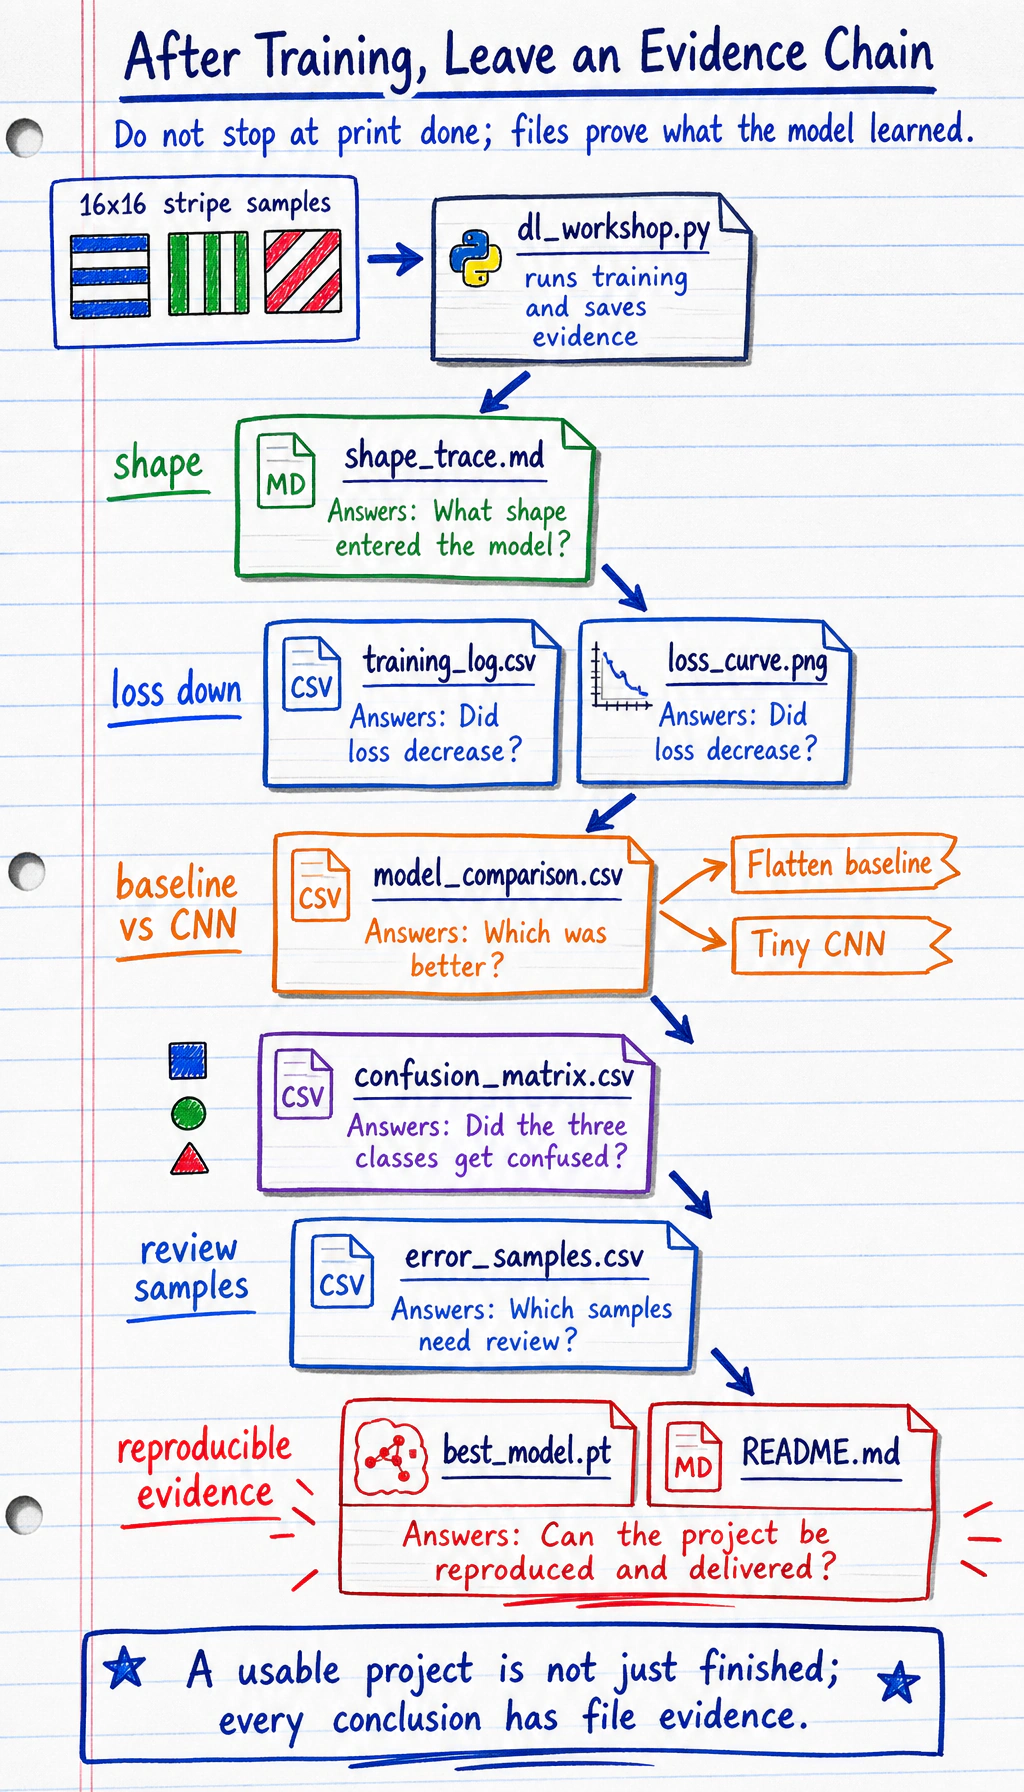 After Training, Leave an Evidence Chain
Do not stop at print done; files prove what the model learned.
16x16 stripe samples
dl_workshop.py
runs training
and saves
evidence
shape
MD
shape_trace.md
Answers: What shape
entered the model?
loss down
CSV
training_log.csv
Answers: Did
loss decrease?
loss_curve.png
Answers: Did
loss decrease?
baseline
vs CNN
CSV
model_comparison.csv
Answers: Which was
better?
Flatten baseline
Tiny CNN
CSV
confusion_matrix.csv
Answers: Did the three
classes get confused?
review
samples
CSV
error_samples.csv
Answers: Which samples
need review?
reproducible
evidence
best_model.pt
MD
README.md
Answers: Can the project be
reproduced and delivered?
A usable project is not just finished;
every conclusion has file evidence.